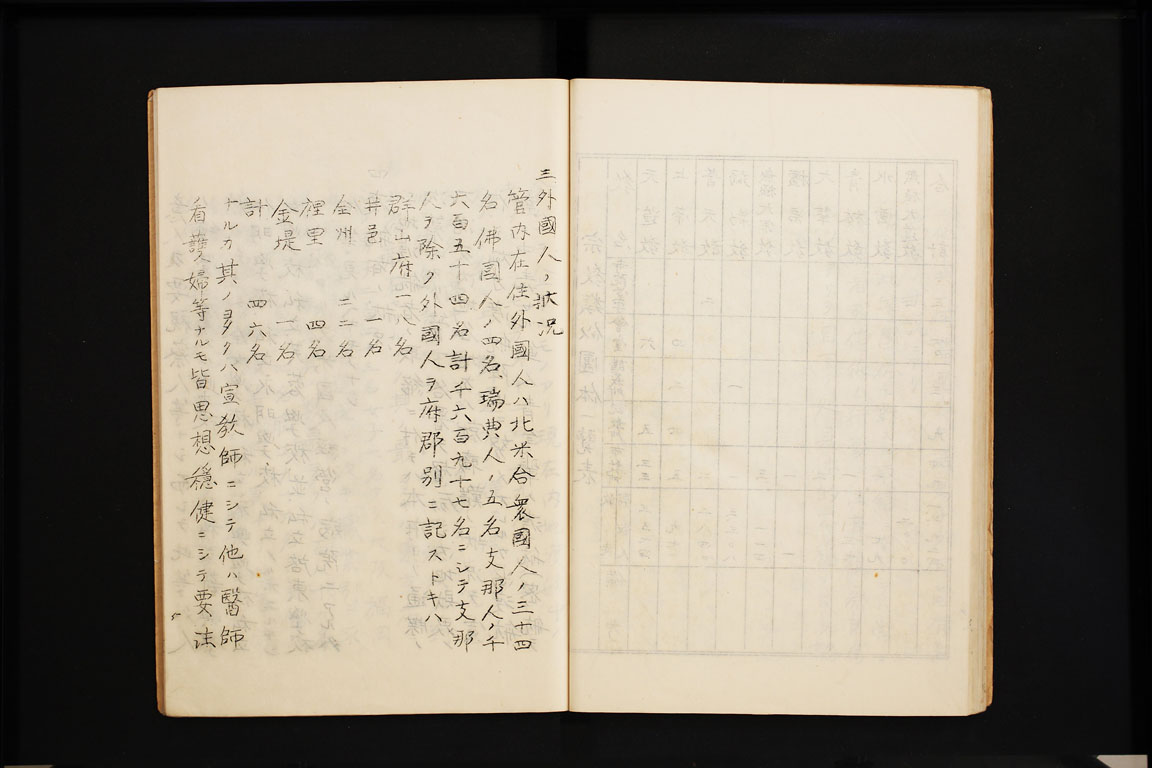 三外國人ノ狀况
管內在住外國人ハ北米合衆國人ノ三十四
名佛國人ノ四名、瑞典人ノ五名支那人ノ千
六百五十四名計千六百九十七名ニシテ支那
人ヲ除ク外國人ヲ府郡別ニ記ストキハ
群山府一八名
井邑 一名
全州 二二名
裡里 四名
金堤 一名
計 四六名
ナルカ其ノ多クハ宣敎師ニシテ他ハ醫師
看護婦等ナルモ皆思想穩健ニシテ要注